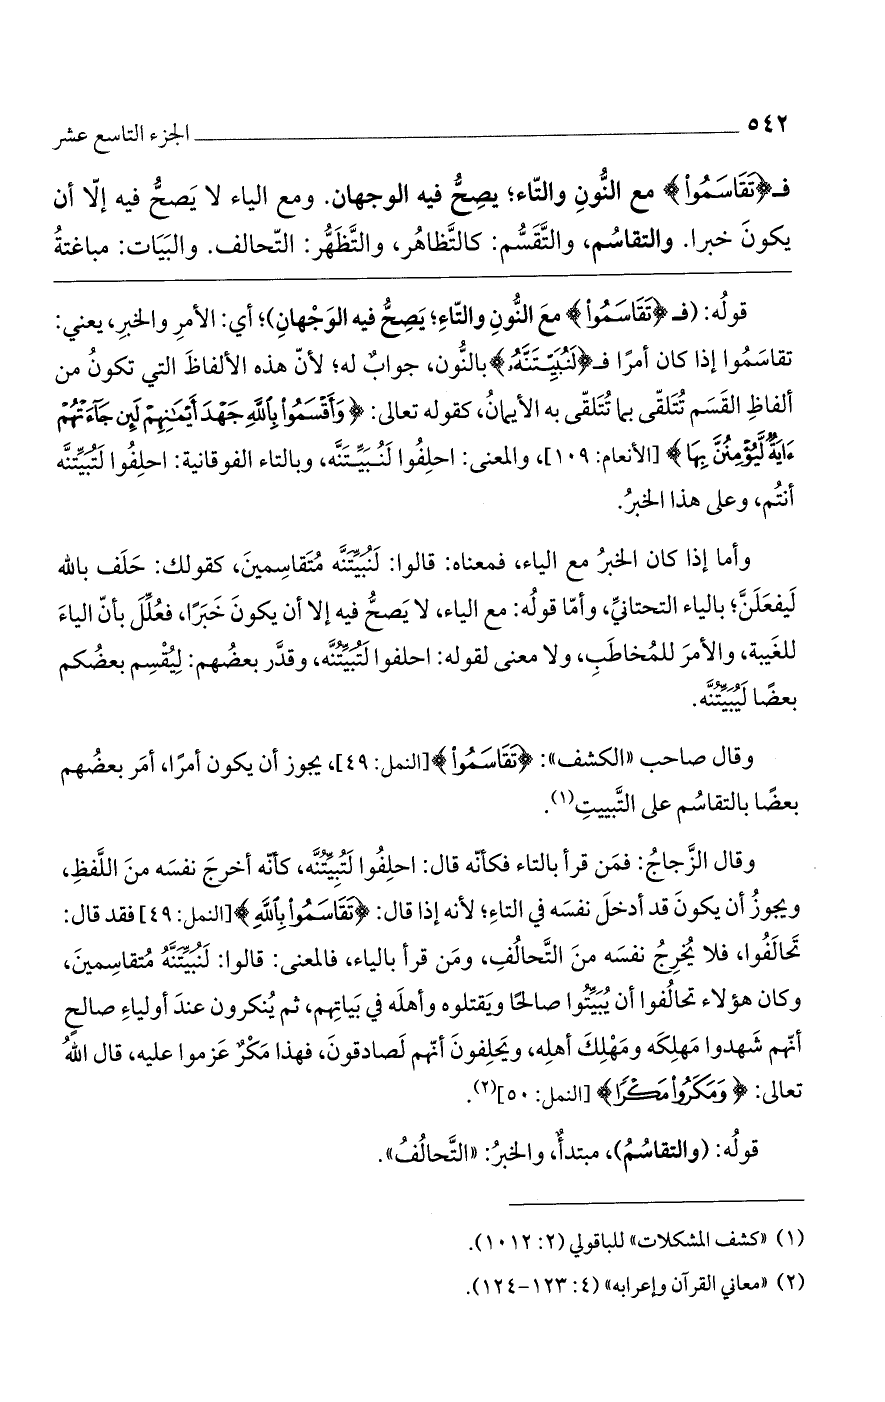 ٥٤٢ ــــــــــــــــــــ الجزء التاسع عشر
فـ﴿تَقَاسَمُوا۟﴾ مع النُّونِ والتّاء؛ يصِحُّ فيه الوجهان. ومع الياء لا يَصحُّ فيه إلّا أن
يكونَ خبرا. والتقاسُم، والتَّقَسُّم: كالتَّظاهُر، والتَّظَهُّر: التّحالف. والبَيَات: مباغتةُ
قولُه: (فـ﴿تَقَاسَمُوا۟﴾ معَ النُّونِ والتّاءِ؛ يَصِحُّ فيه الوَجْهانِ)؛ أي: الأمرِ والخبرِ، يعني:
تقاسَمُوا إذا كان أمرًا فـ﴿لَنُبَيِّتَنَّهُۥ﴾ بالنُّون، جوابٌ له؛ لأنّ هذه الألفاظَ التي تكونُ من
ألفاظِ القَسَم تُتَلقّى بما تُتَلقّى به الأيمانُ، كقوله تعالى: ﴿وَأَقْسَمُوا۟ بِٱللَّهِ جَهْدَ أَيْمَـٰنِهِمْ لَئِن جَآءَتْهُمْ
ءَايَةٌ لَّيُؤْمِنُنَّ بِهَا﴾ [الأنعام: ١٠٩]، والمعنى: احلِفُوا لَنُبَيِّتَنَّه، وبالتاء الفوقانية: احلِفُوا لَتُبَيِّتنَّه
أنتُم، وعلى هذا الخبرُ.
وأما إذا كان الخبرُ مع الياء، فمعناه: قالوا: لَنُبَيِّتَنَّه مُتَقاسِمينَ، كقولك: حَلَف بالله
لَيفعَلَنَّ؛ بالياء التحتانيِّ، وأمّا قولُه: مع الياء، لا يَصحُّ فيه إلا أن يكونَ خَبَرًا، فعُلِّلَ بأنّ الياءَ
للغيبة، والأمرَ للمُخاطَبِ، ولا معنى لقوله: احلفوا لَتُبَيِّتُنَّه، وقدَّر بعضُهم: لِيُقْسِم بعضُكم
بعضًا لَيُبَيِّتُنَّه.
وقال صاحب «الكشف»: ﴿تَقَاسَمُوا۟﴾[النمل: ٤٩]، يجوز أن يكون أمرًا، أمَر بعضُهم
بعضًا بالتقاسُم على التَّبييتِ(١).
وقال الزَّجاجُ: فمَن قرأ بالتاء فكأنّه قال: احلِفُوا لَتُبيِّتُنَّه، كأنّه أخرجَ نفسَه منَ اللَّفظِ،
ويجوزُ أن يكونَ قد أدخلَ نفسَه في التاءِ؛ لأنه إذا قال: ﴿تَقَاسَمُوا۟ بِٱللَّهِ﴾[النمل: ٤٩] فقد قال:
تَحَالَفُوا، فلا يُخرِجُ نفسَه منَ التَّحالُفِ، ومَن قرأ بالياء، فالمعنى: قالوا: لَنُبَيِّتَنَّهُ مُتقاسمينَ،
وكان هؤلاء تحالُفوا أن يُبَيِّتُوا صالحًا ويَقتلوه وأهلَه في بَياتِهم، ثم يُنكرون عندَ أولياءِ صالحٍ
أنّهم شَهدوا مَهلِكَه ومَهْلِكَ أهلِه، ويَحلِفونَ أنّهم لَصادقونَ، فهذا مَكْرٌ عَزموا عليه، قال اللهُ
تعالى: ﴿وَمَكَرُوا۟ مَكْرًا﴾ [النمل: ٥٠](٢).
قولُه: (والتقاسُمُ)، مبتدأٌ، والخبرُ: «التَّحالُفُ».
(١) «كشف المشكلات» للباقولي (٢: ١٠١٢).
(٢) «معاني القرآن وإعرابه» (٤: ١٢٣-١٢٤).